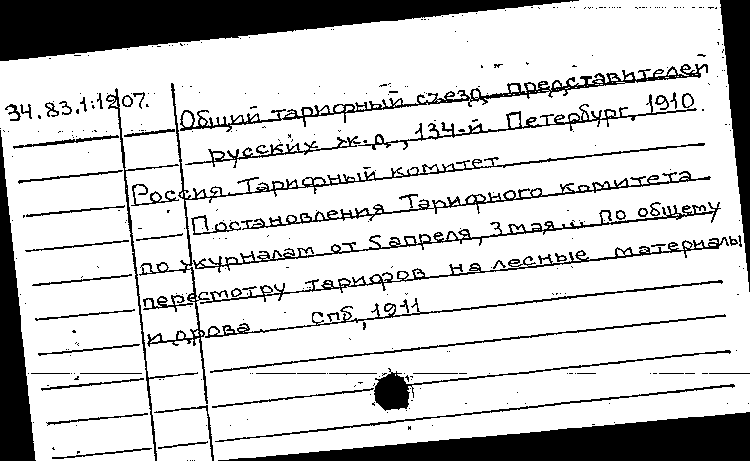 34.83.1:1207.
Общий тарифный съезд представителей
русских ж.д., 134-й. Петербург, 1910.
Россия. Тарифный комитет.
Постановления Тарифного комитета
по журналам от 5 апреля, 3 мая... по общему
пересмотру тарифов на лесные материалы
и дрова. Спб., 1911